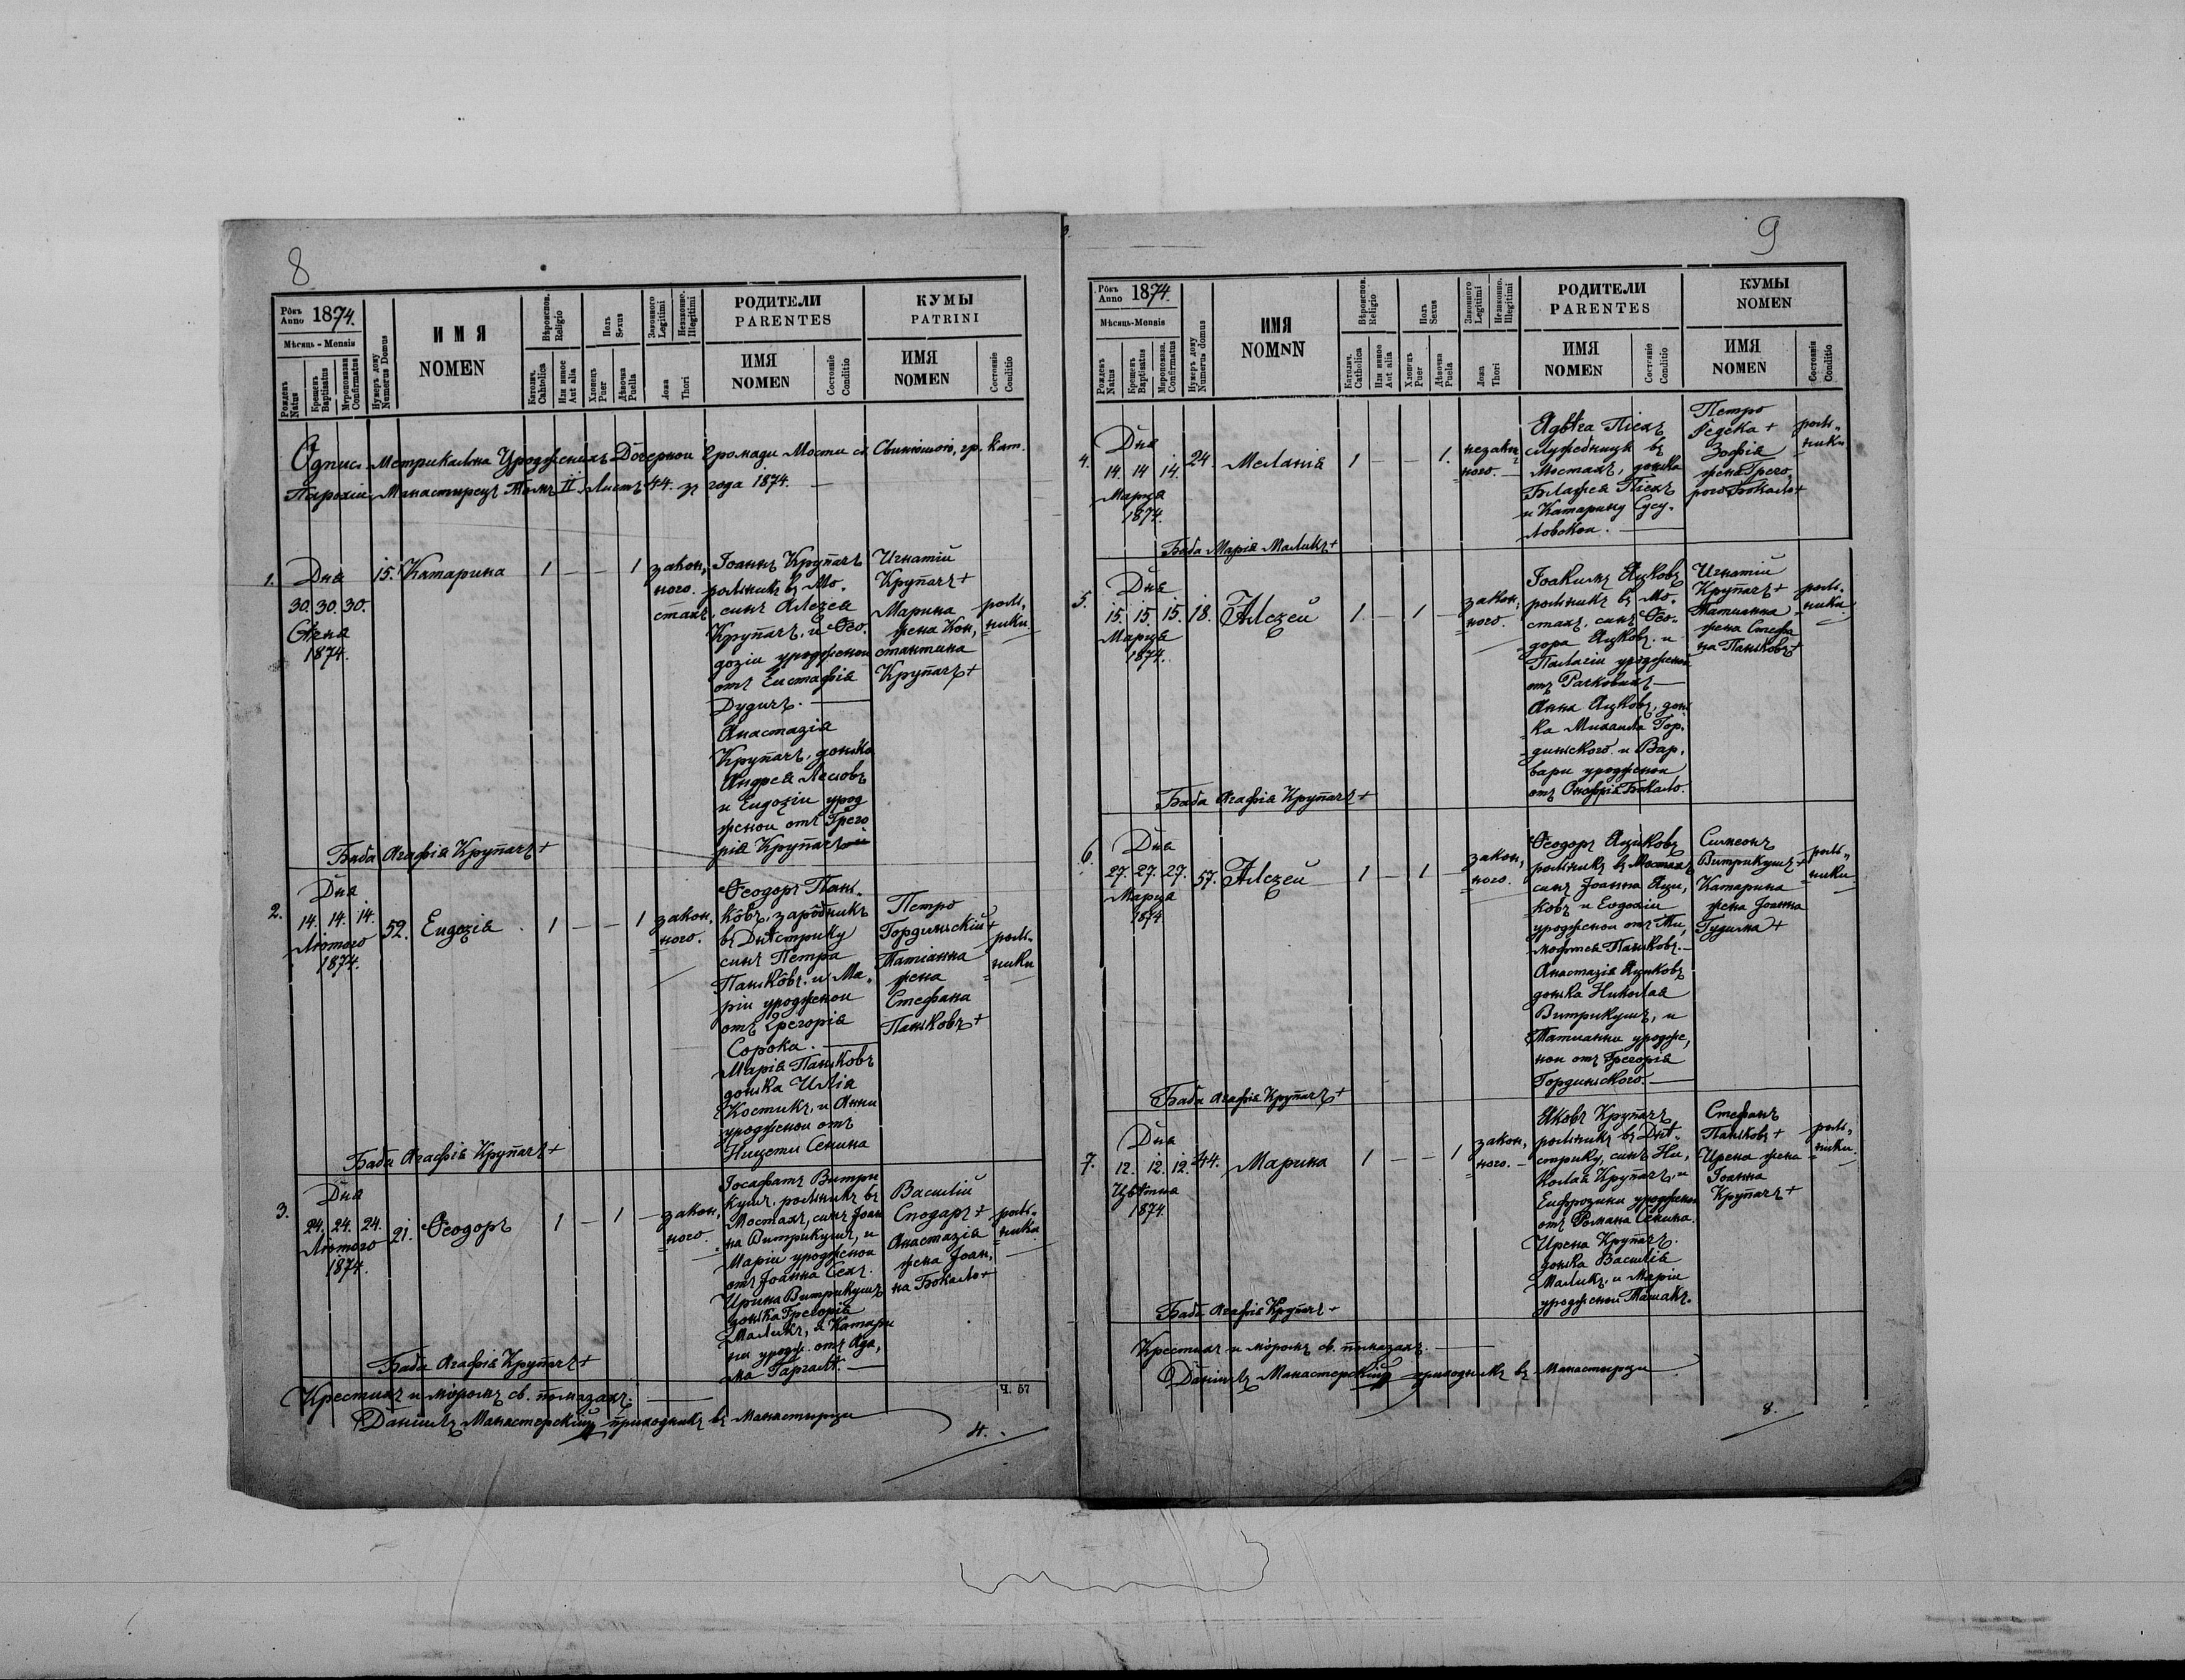 8
Рôкъ Anno 1874.
Мѣсяць - Mensis
Рожденъ Natus
Крещенъ Baptisatus
Мѵропомазан Confirmatus
Нумеръ дому Numerus Domus
ИМЯ
NOMEN
Вѣроиспов. Religio
Католич. Cahtolica
Или инное Aut alia
Полъ Sexus
Хлопецъ Puer
Дѣвочка Puella
Законного Legitimi
Незаконно. Illegitimi
Ложа Thori
РОДИТЕЛИ
PARENTES
ИМЯ
NOMEN
Состояніе Conditio
КУМЫ
PATRINI
ИМЯ
NOMEN
Состояніе Conditio
Одпис Метрикальна Урожденихъ Дочерной Громади Мости гр. кат.
Парохіи Манастирецъ Томъ II. Листъ 44. зъ года 1874.
1.
Дня
30. 30. 30.
Сѣчня
1874.
15. Катарина 1 — — 1
закон,
ного.
Іоаннъ Крупачъ
рольникъ въ Мо,
стахъ, синъ Алезея
Крупачъ, и Ѳео,
дозіи урожденой
отъ Евстафія
Дудичъ. —
Анастазія
Крупачъ, донька
Андрея Лесювъ
и Евдозіи урод
женои отъ Грего
рія Крупачъ
Игнатій
Крупачъ +
Марина
жена Кон,
стантина
Крупачъ +
роль,
ники
Баба Агафія Крупачъ +
2.
Дня
14. 14. 14.
Лютого
1874.
52. Евдозія 1 — — 1
закон,
ного.
Ѳеодоръ Пань,
кôвъ, зарôбникъ
въ Днѣстрику
синъ Петра
Панькôвъ, и Ма,
ріи урожденои
отъ Грегорія
Сорока. —
Марія Паньковъ
донька Илія
Костикъ, и Анни
урожденои отъ
Никети Сенина
Петро
Гординьскій +
Татіанна
жена
Стефана
Паньковъ +
роль,
ники
Баба Агафія Крупачъ +
3.
Дня
24. 24. 24.
Лютого
1874.
21. Ѳеодоръ 1 — 1 —
закон,
ного.
Іосафатъ Витри
кушъ, рольникъ въ
Мостахъ, синъ Іоан
на Витрикушъ, и
Маріи урожденои
отъ Іоанна Сехъ.
Ирина Витрикушъ
донька Грегорія
Маликъ, и Катари
ни урожд. отъ Ада,
ма Гаргалѣ. —
Василій
Сподаръ +
Анастазія
жена Іоан,
на Бокало +
роль,
ника
Баба Агафія Крупачъ +
Крестихъ и мѵромъ св. помазахъ. —
Даніилъ Манастерскій приходникъ въ Манастирци
Ч. 57
4.
9
Рôкъ Anno 1874.
Мѣсяць-Mensis
Рожденъ Natus
Крещенъ Baptisatus
Мѵропомаза. Confirmatus
Нумеръ дому Numerus domus
ИМЯ
NOMNN
Вѣроиспов. Religio
Католич. Catholica
Или инное Aut alia
Полъ Sexus
Хлопецъ Puer
Дѣвочка Puela
Законного Legitimi
Незаконно. Illegitimi
Ложа Thori
РОДИТЕЛИ
PARENTES
ИМЯ
NOMEN
Состояніе Conditio
КУМЫ
NOMEN
ИМЯ
NOMEN
Состояніе Conditio
4.
Дня
14. 14. 14.
Марця
1874.
24. Меланія 1 — — 1.
незакон
ного.
Ядвѣга Піехъ
служебниця въ
Мостахъ, донька
Блажея Піехъ
и Катарину Сусу,
ловскои. —
Петро
Редека +
Зофія
жена Грего,
рого Бокало +
роль,
ники
Баба Марія Маликъ +
5.
Дня
15. 15. 15.
Марця
1874.
18. Алезей 1 — 1 —
закон,
ного.
Іоакимъ Яцковъ
рольникъ въ Мо,
стахъ, синъ Ѳео,
дора Яцковъ, и
Палагіи урожденой
отъ Рачковихъ —
Анна Яцковъ, донь
ка Михаила Гор,
диньского и Вар,
вари урожденои
отъ Онофрія Бокало.
Игнатій
Крупачъ +
Татианна
жена Стефа
на Паньковъ +
роль,
ника
Баба Агафія Крупачъ +
6.
Дня
27. 27. 27.
Марця
1874.
57. Алезей 1 — 1 —
закон,
ного.
Ѳеодоръ Яцьковъ
рольникъ въ Мостахъ
синъ Іоанна Яць,
ковъ и Евдокіи
урожденои отъ Ти,
мофтея Паньковъ. —
Анастазія Яцьковъ
донька Николая
Витрикушъ, и
Татианни урожде,
нои отъ Грегорія
Гординьского. —
Симеонъ
Витрикушъ +
Катарина
жена Іоанна
Гудима +
роль,
ники
Баба Агафія Крупачъ +
7.
Дня
12. 12. 12.
Цвѣтня
1874.
44. Марина 1 — — 1
закон,
ного. —
Яковъ Крупачъ
рольникъ въ Днѣ,
стрику, синъ Ни,
колая Крупачъ, и
Евфрозини урожденой
отъ Романа Сенина.
Ирена Крупачъ.
донька Василія
Маликъ, и Маріи
урожденои Машакъ.
Стефанъ
Паньковъ +
Ирена жена
Іоанна
Крупачъ +
роль,
ники.
Баба Агафія Крупачъ +
Крестихъ и мѵромъ св. помазахъ. —
Даніилъ Манастерскій приходникъ въ Манастирци
8.